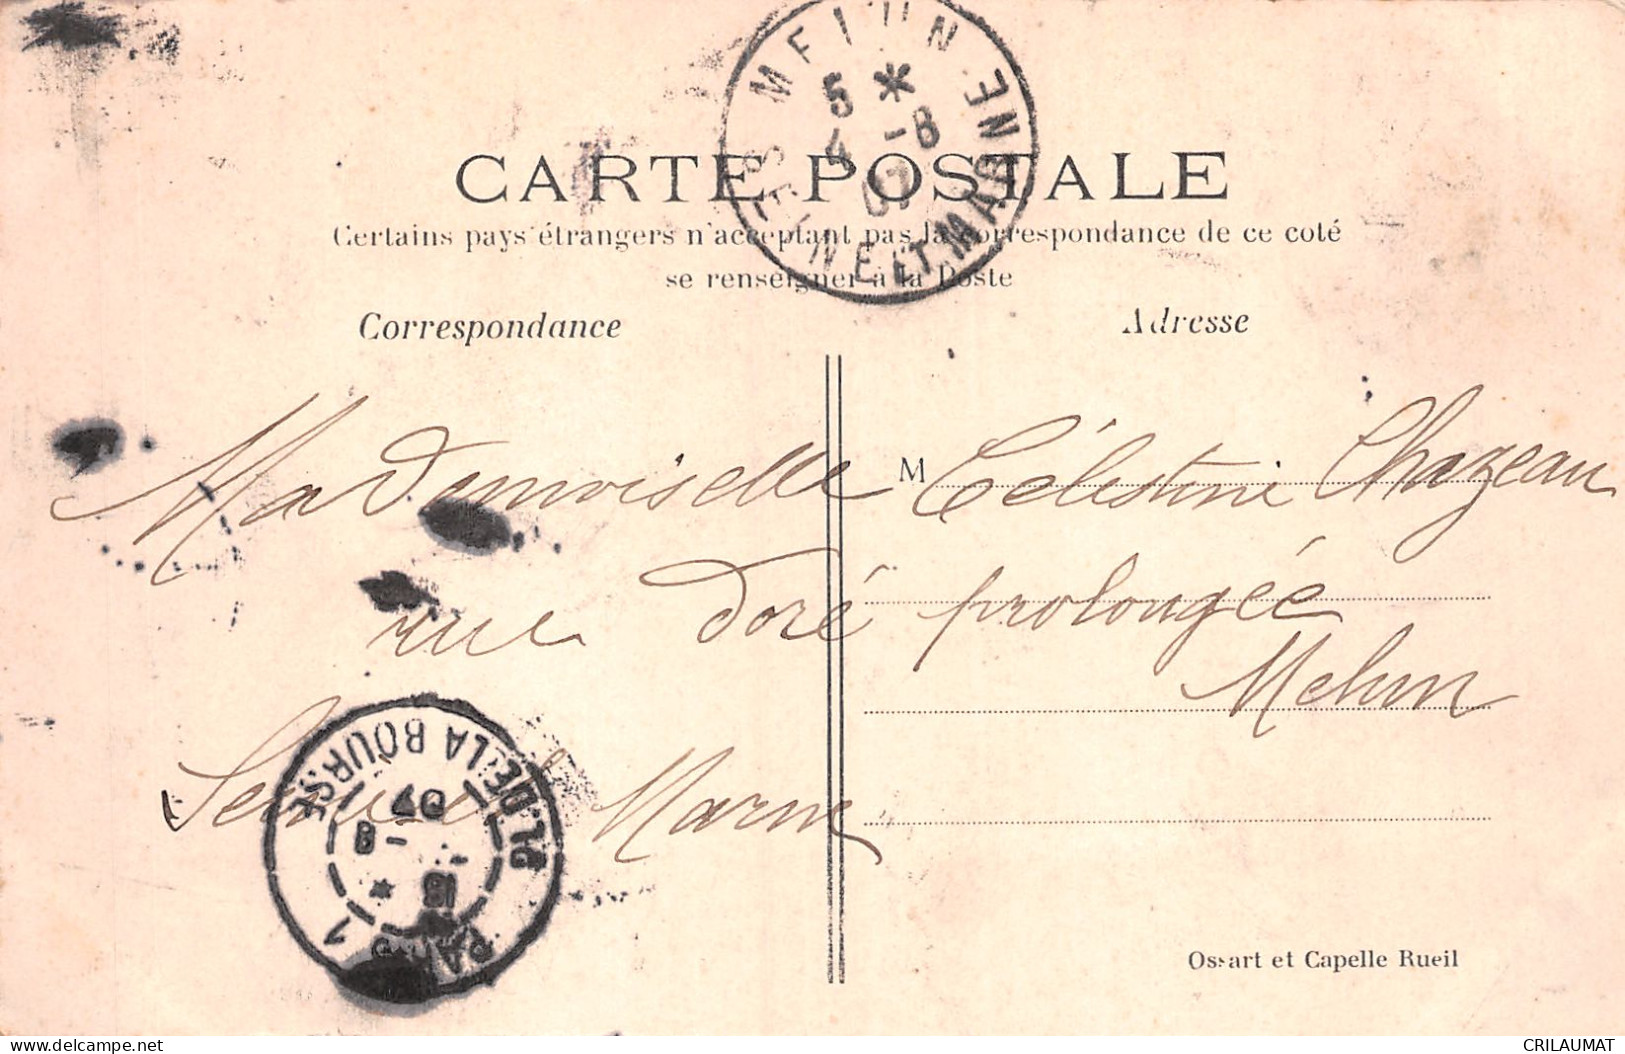 MELUN
5 *
4 -8
07
SEINE ET MARNE
CARTE POSTALE
Certains pays étrangers n'acceptant pas la correspondance de ce coté
se renseigner à la Poste
Correspondance
Adresse
Mademoiselle
M Célestine Chazeau
rue doré prolongée
Melun
Seine et Marne
PARIS 1
PL. DE LA BOURSE
18
* - 8
07
Ossart et Capelle Rueil
CRILAUMAT
delcampe.net